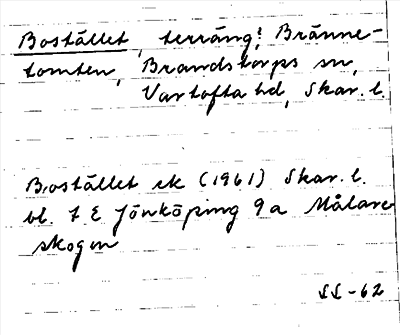 Bostället, terräng? Bränne-
tomten, Brandstorps sn,
Vartofta hd, Skar. l.
Bostället ek (1961) Skar. l.
bl. 7 E Jönköping 9 a Målare
skogen
SS-62